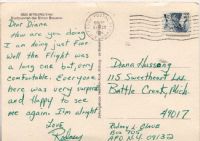 Dear Diana
How are you doing
I am doing just fine
Well the Flight was
a long one but, very
comfortable. Everyone
here was very surprised
and Happy to see
me again. I'm alright
Love,
Rodney
Dana Hussong
115 Sweetheart Les
Battle Creek, Mich.
49017
Rodney L
Box 705
APO N.Y. 09132